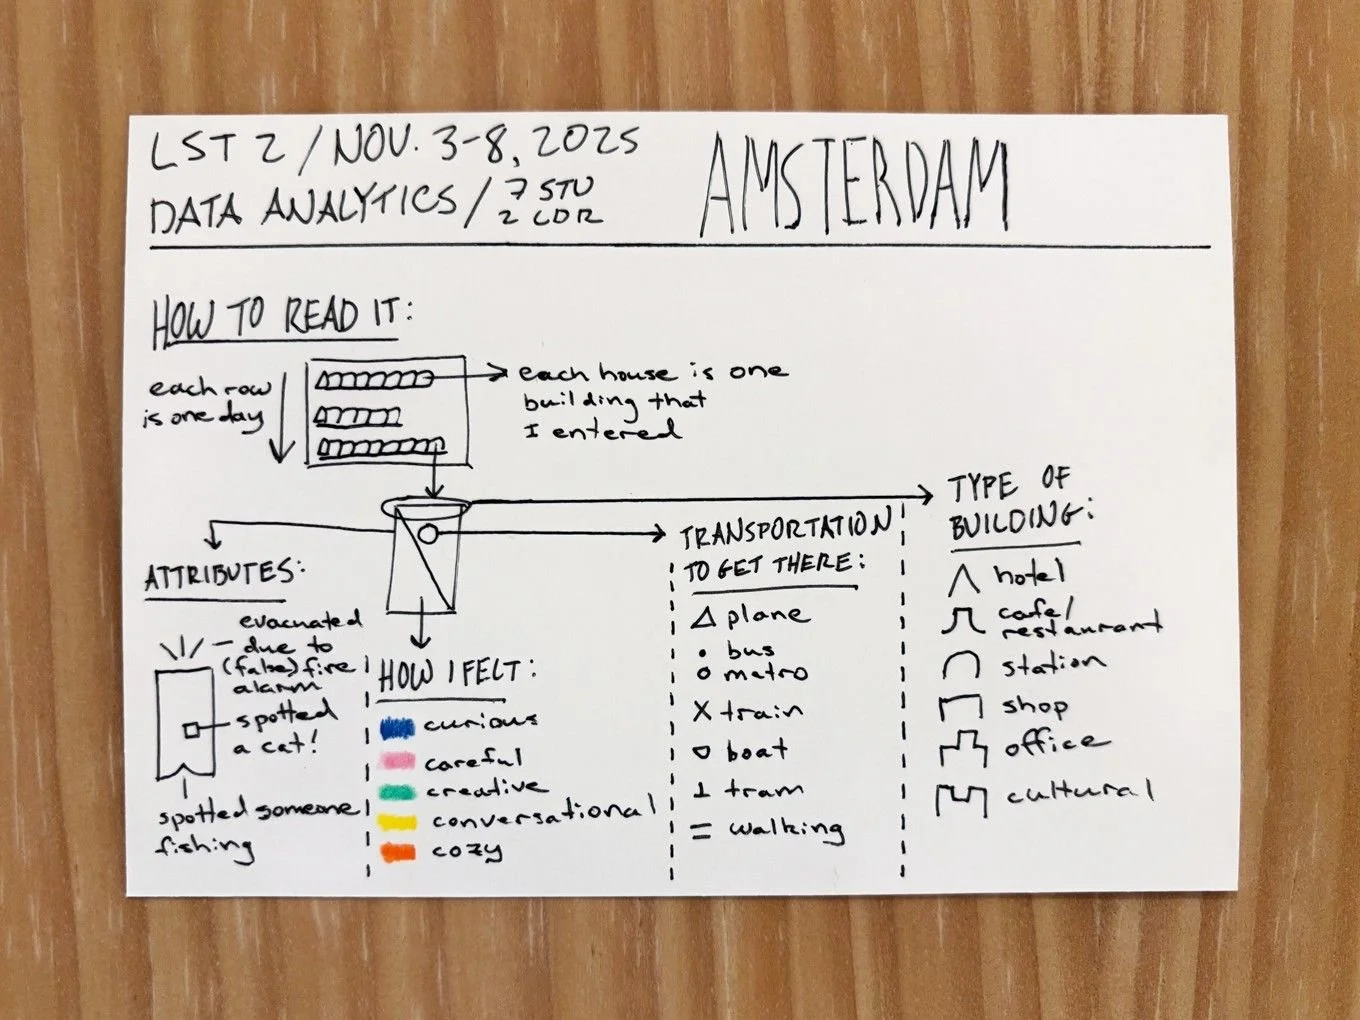 LST 2 / NOV. 3-8, 2025
DATA ANALYTICS / 7 STU
2 CDR
AMSTERDAM
HOW TO READ IT:
each row
is one day
each house is one
building that
I entered
ATTRIBUTES:
evacuated
due to
(false) fire
alarm
spotted
a cat!
spotted someone
fishing
HOW I FELT:
curious
careful
creative
conversational
cozy
TRANSPORTATION
TO GET THERE:
plane
bus
metro
train
boat
tram
walking
TYPE OF
BUILDING:
hotel
cafe/
restaurant
station
shop
office
cultural